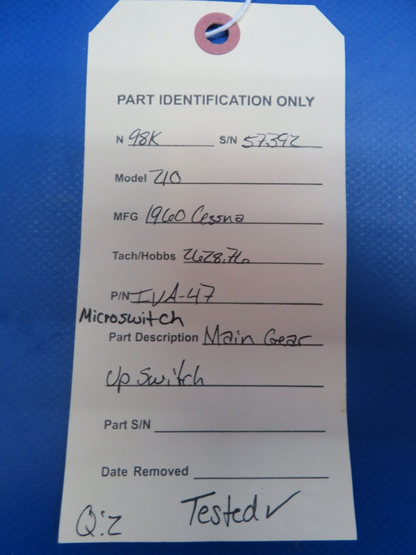 PART IDENTIFICATION ONLY
N 98K S/N 57392
Model 210
MFG 1960 Cessna
Tach/Hobbs 2628.76
P/N IVA-47
Microswitch
Part Description Main Gear
Up Switch
Part S/N
Date Removed
Q:2 Tested ✓